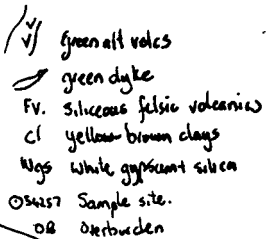 v v
v green alt volcs
green dyke
Fv. siliceous felsic volcanics
cl yellow brown clays
Wgs white gypscent silica
54257 Sample site.
OB Overburden